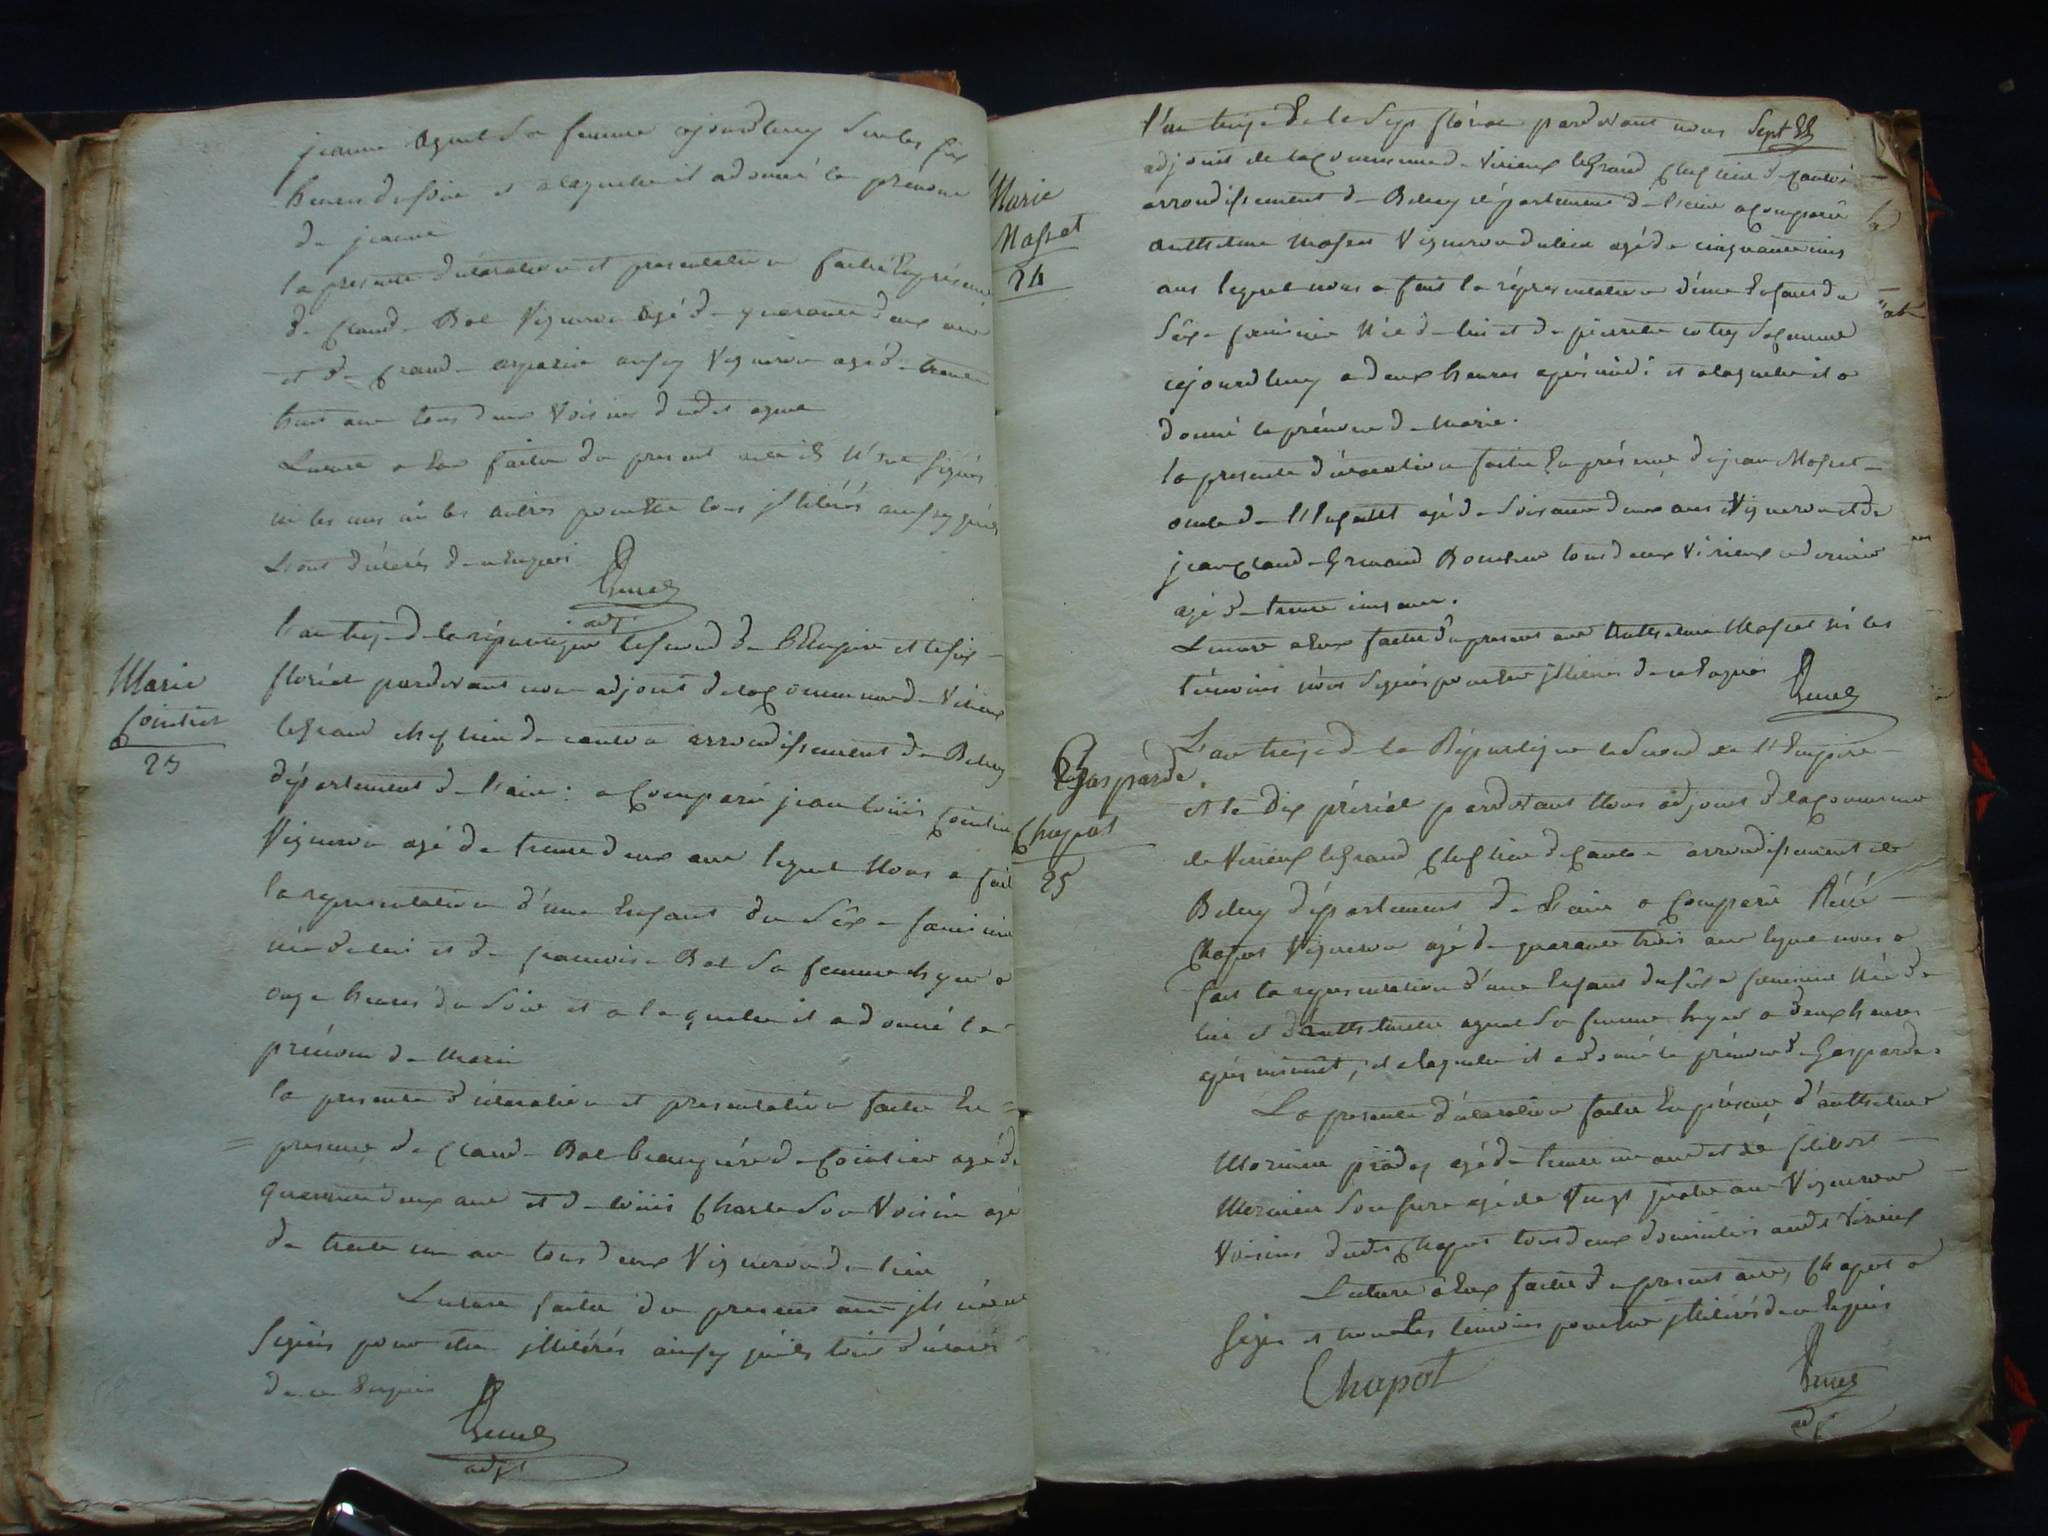 jeanne aguet Sa femme ajourdhuy Sur les six
heures du soir et a laquelle il a donné le prénom
de jeanne
la presente déclaration et presentation faitte En présence
de Claude Bal Vigneron agé de quarante deux ans
et de Claude aussy Vigneron agé de trente
huit ans tous deux Voisins dudit aguet
Lecture a Eux faitte du present acte ils N'ont Signés
ni les uns ni les autres pour Etre tous jllitérés aussy qu'ils
L'ont déclarés de ce Enquis
adjt
Marie
Cointier
23
l'an treize de la république le second de L'Empire et le six
floréal pardevant nous adjoint de la Commune de Virieux
le Grand chef lieu de canton arrondissement de Belley
département de l'ain : a Comparu jean louis Cointier
Vigneron agé de trente deux ans lequel Nous a fait
la representation d'une Enfant du Sêxe feminin
née de lui et de francoise Bal Sa femme hyer a
onze heures du Soir et a laquelle il a donné le
prénom de Marie
la presente déclaration et presentation faitte En =
= presence de Claude Bal beaufrère de Cointier agé de
quarante deux ans et de louis Charle Son Voisin agé
de trente un an tous deux Vigneron de lieu
Lecture faitte du present acte jls n'ont
Signés pour être jllitérés ainsy qu'ils l'ont déclarés
de ce Enquis
adjt
Marie
Masset
24
l'an treize de le Sept floréal pardevant nous Sept
adjoint de la Commune de Virieux le Grand Chef lieu de Canton
arrondissement de Belley département de l'ain a Comparu
anthelme Masset Vigneron du lieu agé de cinquante
ans lequel nous a fait la réprésentation d'une Enfant du
Sêxe feminin Née de lui et de pierrette Sa femme
cejourdhuy a deux heures après midi et a laquelle il a
donné le prénom de Marie.
la presente déclaration faitte En présence de jean Masset
oncle de l'Enfant agé de Soixante deux ans Vigneron et de
jean Claude Boucher tous deux Virieux ce dernier
agé de trente cinq ans.
Lecture a Eux faitte du present acte Anthelme Masset ni les
témoins n'ont Signés pour Etre jllitérés de ce Enquis
Gasparde
Chapot
25
L'an treize de la République le Second de l'Empire
et le Dix prérial pardevant Nous adjoint de la Commune
de Virieux le Grand Chef lieu de Canton arrondissement de
Belley département de L'ain a Comparu Réné
Chapot Vigneron agé de quarante trois ans lequel nous a
fait la représentation d'une Enfant du sêxe feminin Née de
lui et d'anthelmette aguet Sa femme hyer a deux heures
après minuit, et a laquelle il a donné le prénom de Gasparde.
La presente déclaration faitte En présence d'anthelme
Mornieu agé de trente un an et de
Mornieu Son frere agé de Vingt quatre ans Vigneron
Voisins dudit Chapot tous deux domiciliés audit Virieux
Lecture a Eux faitte du present acte, Chapot a
Signé et non les témoins pour Etre jllitérés de ce Enquis
Chapot
adjt